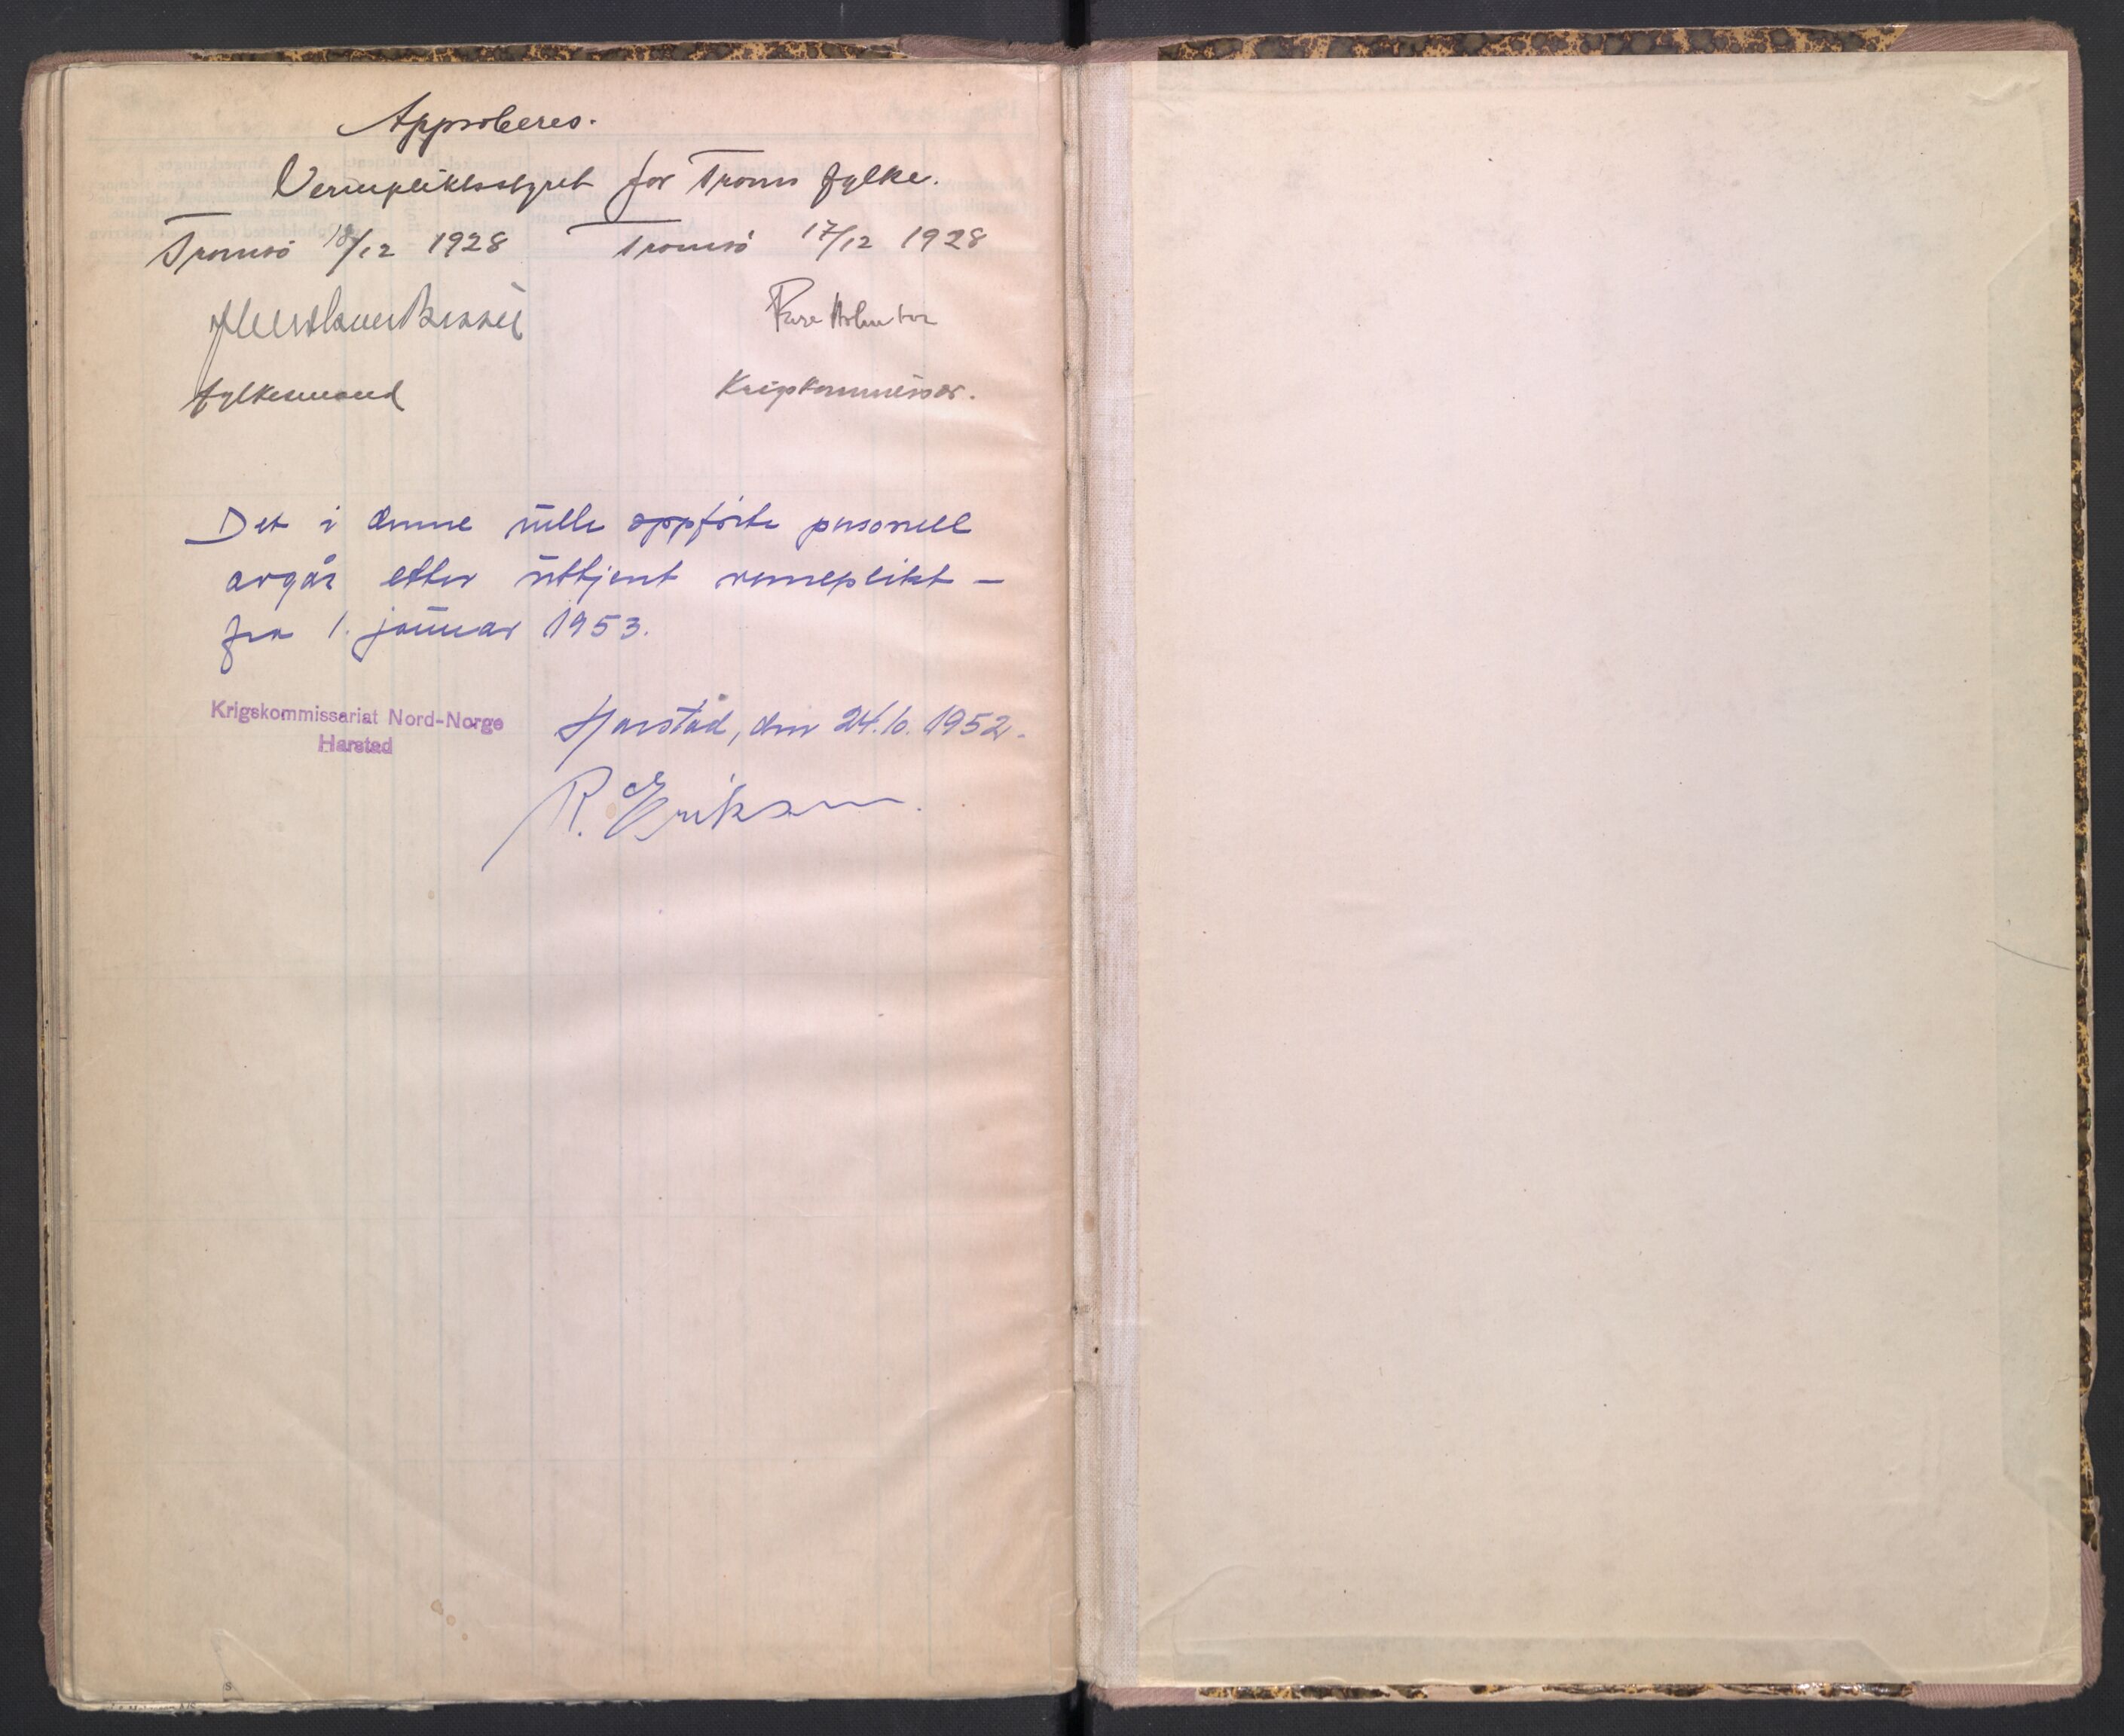 Approberes.
Vernepliktsstyret for Troms fylke.
Tromsö 18/12 1928 Tromsö 17/12 1928
fylkesmand Krigskommissær.
Det i denne rulle oppförte personell
avgår etter uttjent verneplikt -
fra 1. januar 1953.
Krigskommissariat Nord-Norge
Harstad
Harstad, den 24.10. 1952.
R. Eriksen.